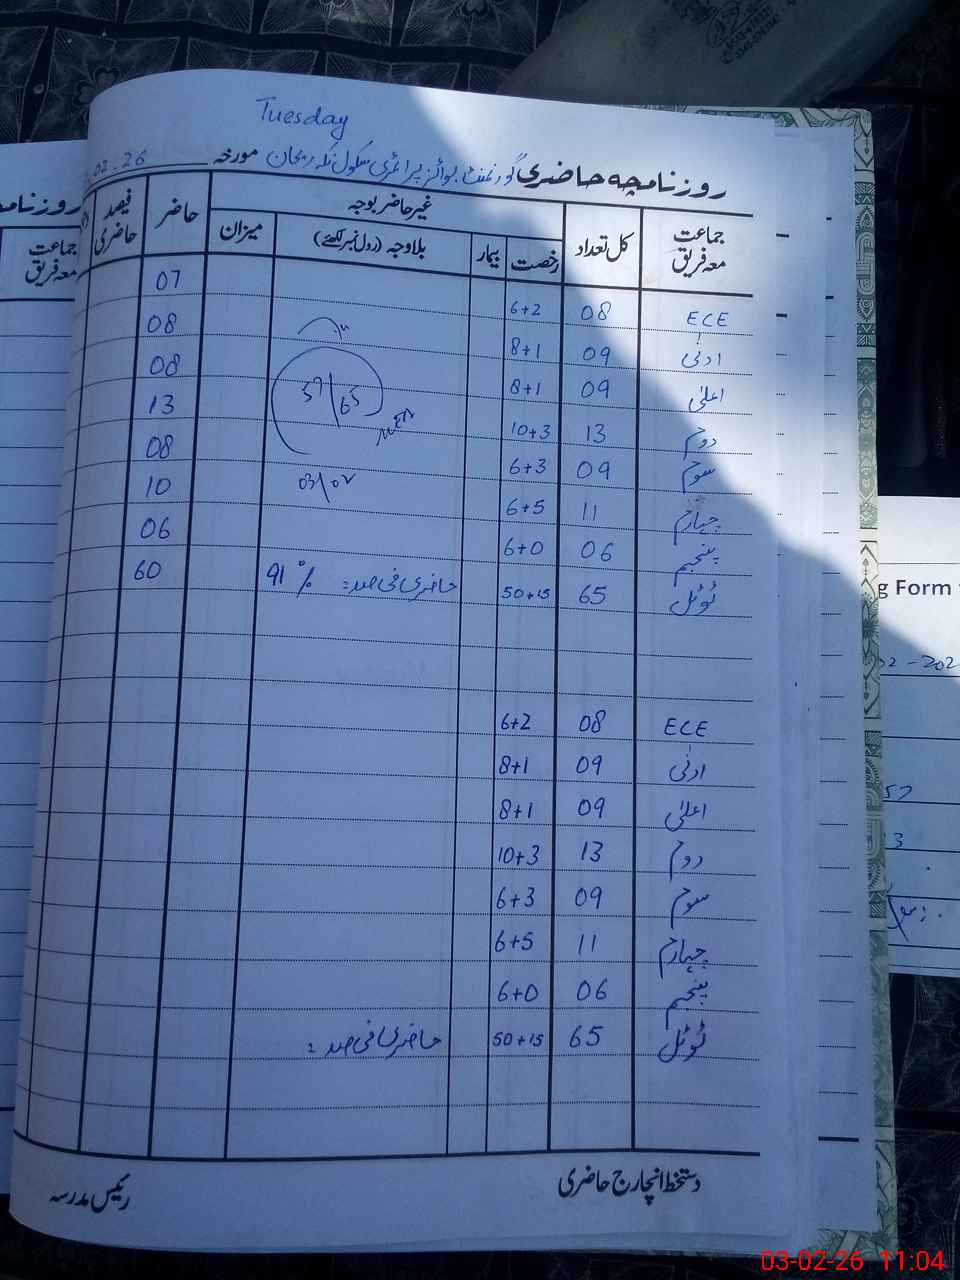 Tuesday
روزنامچہ حاضری گورنمنٹ بوائز پرائمری سکول نکہ ریحان مورخہ 02.26
جماعت معہ فریق کل تعداد غیر حاضر بوجہ حاضر فیصد حاضری
رخصت بیمار بلاوجہ (رول نمبر لکھئے) میزان
ECE 08 6+2 07
ادنیٰ 09 8+1 08
اعلیٰ 09 8+1 08
دوم 13 10+3 13
سوم 09 6+3 08
چہارم 11 6+5 10
پنجم 06 6+0 06
ٹوٹل 65 50+15 حاضری فی صد: 91% 60
57/65
MEA
03/02
ECE 08 6+2
ادنیٰ 09 8+1
اعلیٰ 09 8+1
دوم 13 10+3
سوم 09 6+3
چہارم 11 6+5
پنجم 06 6+0
ٹوٹل 65 50+15 حاضری فی صد:
دستخط انچارج حاضری رئیس مدرسہ
روزنامچہ
جماعت
معہ فریق
g Form
02-202
57
3
03-02-26 11:04